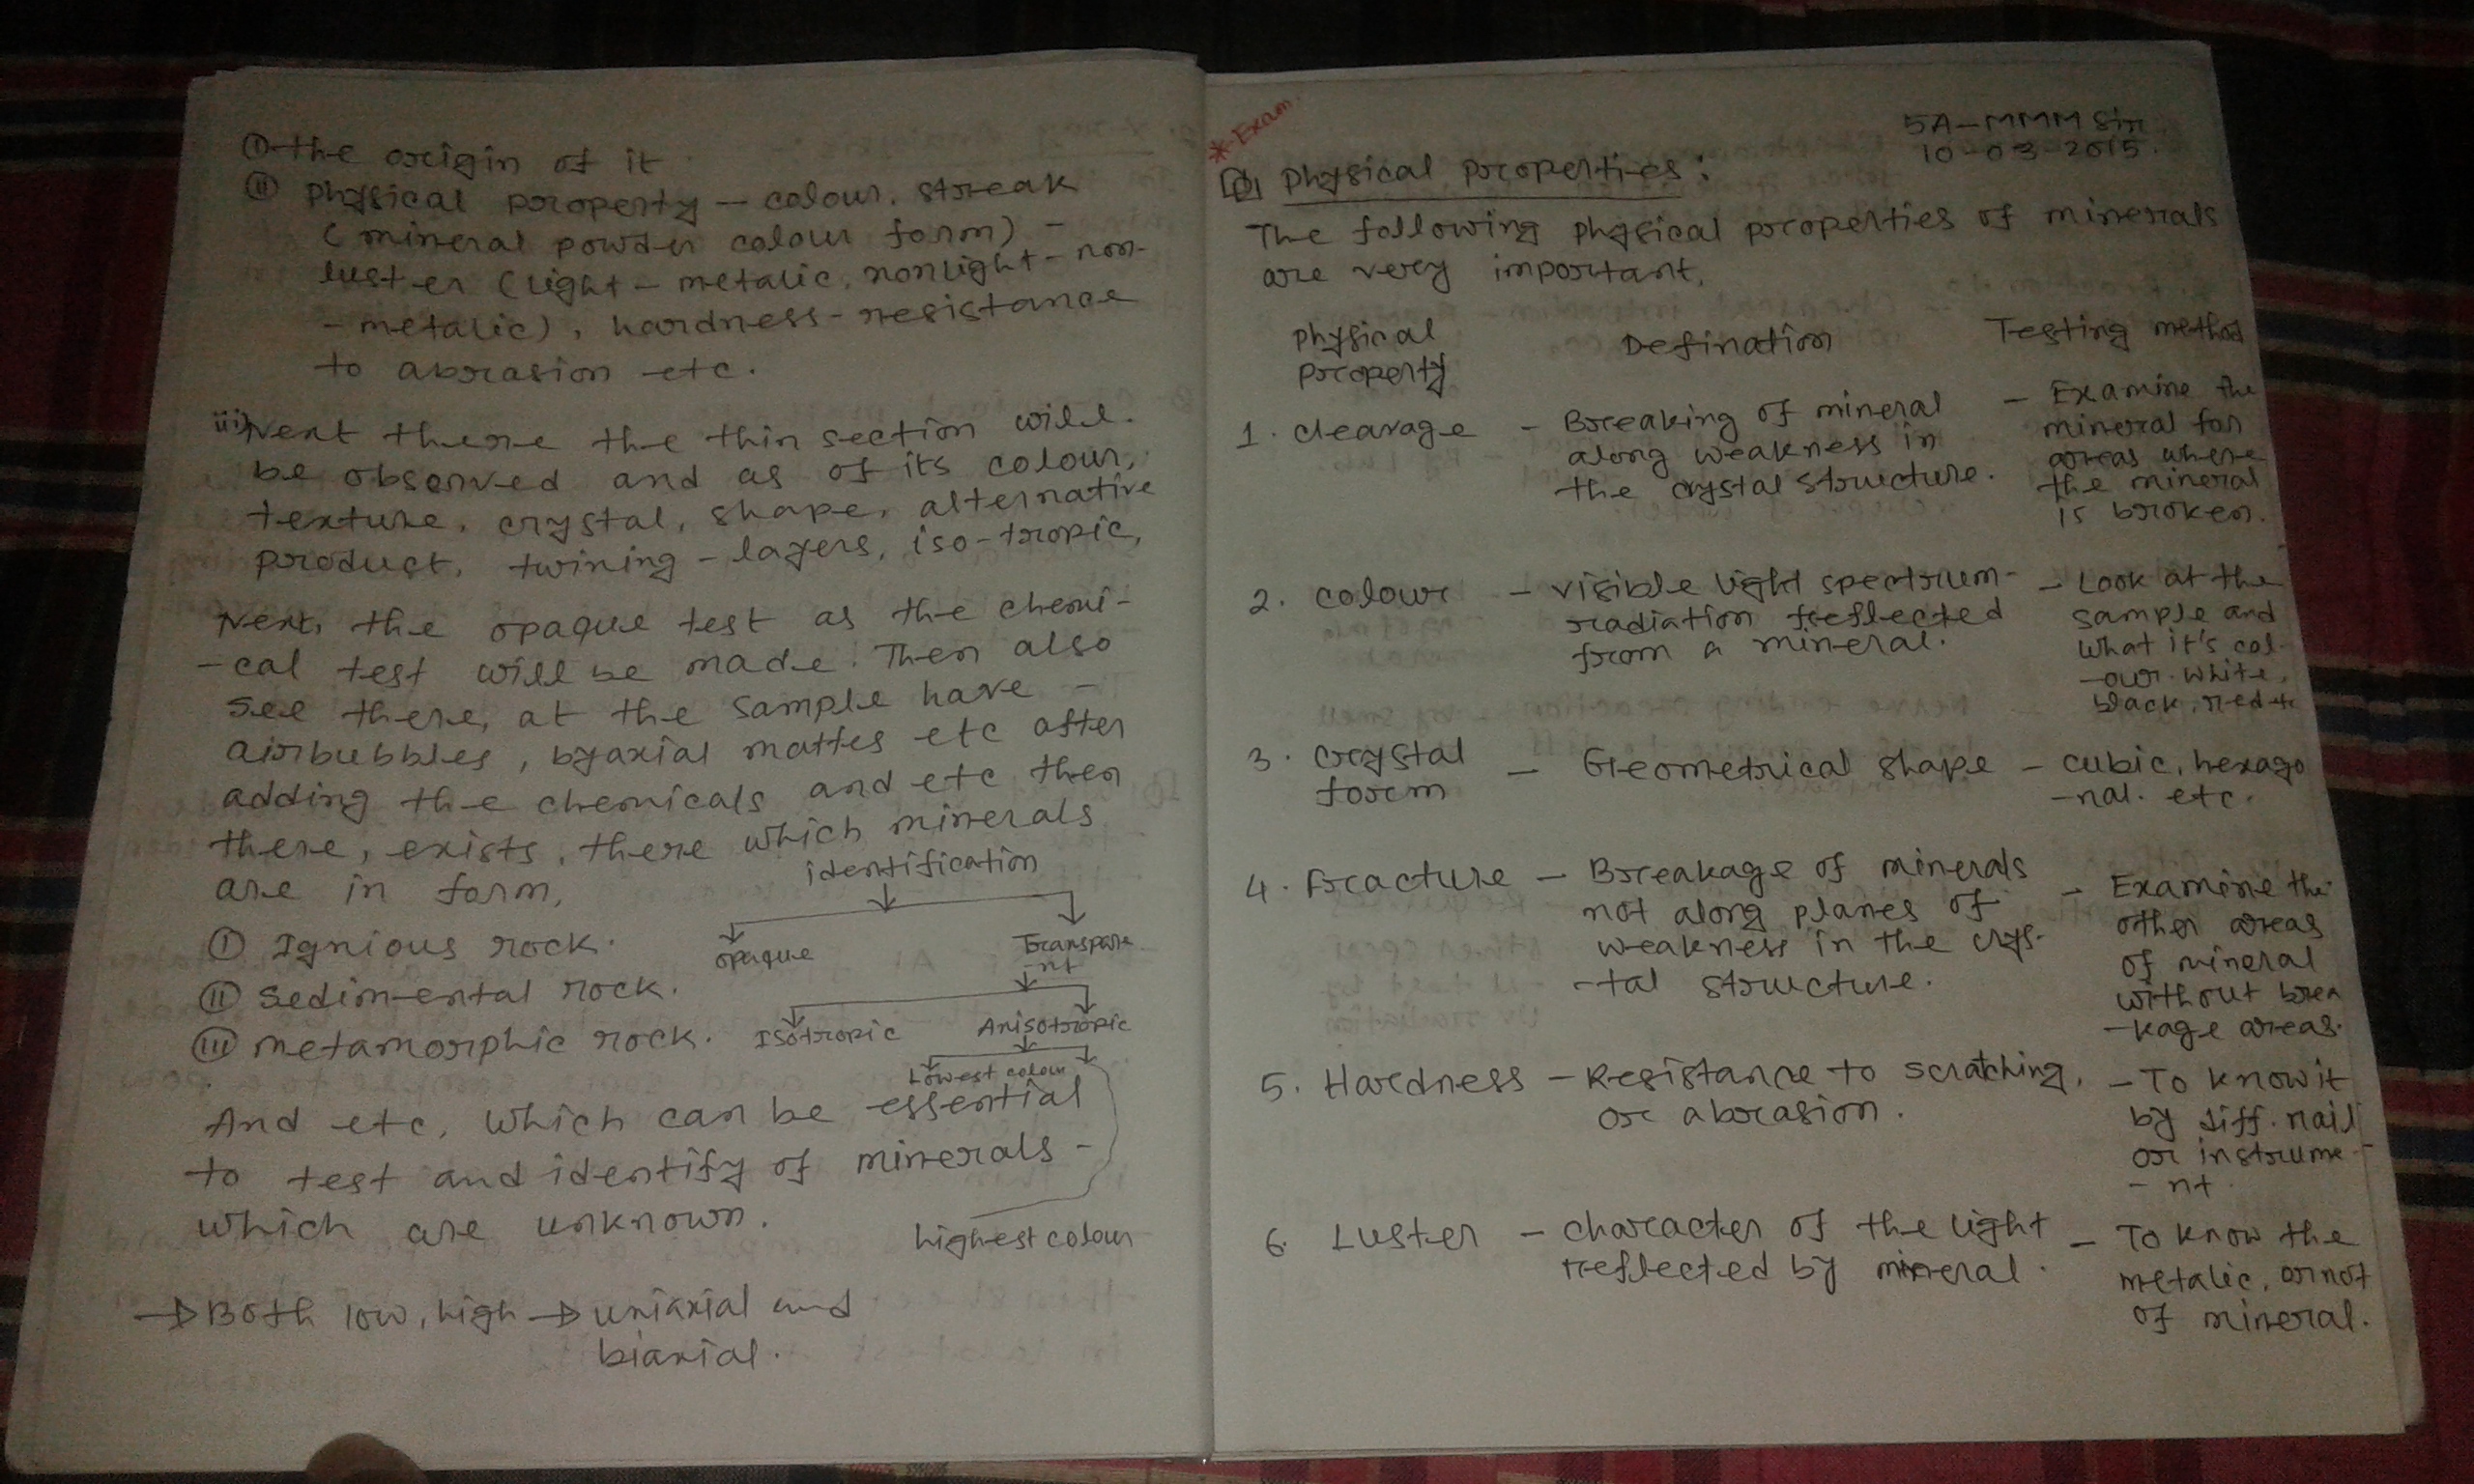 ① the origin of it
② physical property - colour, streak
(mineral powder colour form) -
luster (light - metalic, nonlight - non-
- metalic), hardness - resistance
to abrasion etc.
iii) Next there the thin section will
be observed and as of its colour,
texture, crystal, shape, alternative
product, twining - layers, iso-tropic,
Next, the opaque test as the chemi-
-cal test will be made. Then also
see there, at the sample have -
airbubbles, byaxial mattes etc after
adding the chemicals and etc then
there, exists, there which minerals
are in form,
identification
opaque
Transpare
-nt
Isotropic
Anisotropic
Lowest colour
highest colour
① Ignious rock.
② Sedimental rock.
③ metamorphic rock.
And etc, which can be essential
to test and identify of minerals -
which are unknown.
→ Both low, high → uniaxial and
biaxial.
*-Exam
5A-MMM Sir
10-03-2015.
Physical properties:
The following physical properties of minerals
are very important,
Physical
property
Defination
Testing method
1. cleavage - Breaking of mineral
along weakness in
the crystal structure.
- Examine the
mineral for
areas where
the mineral
is broken.
2. colour - visible light spectrum-
radiation reflected
from a mineral.
- Look at the
sample and
what it's col-
-our white,
black, red etc
3. crystal
form
- Geometrical shape - cubic, hexago
-nal. etc.
4. Fracture - Breakage of minerals
not along planes of
weakness in the crys-
-tal structure.
- Examine the
other areas
of mineral
without brea
-kage areas.
5. Hardness - Resistance to scratching,
or abrasion.
- To know it
by diff. nail
or instrume-
-nt
6. Luster - character of the light
reflected by mineral.
- To know the
metalic, or not
of mineral.